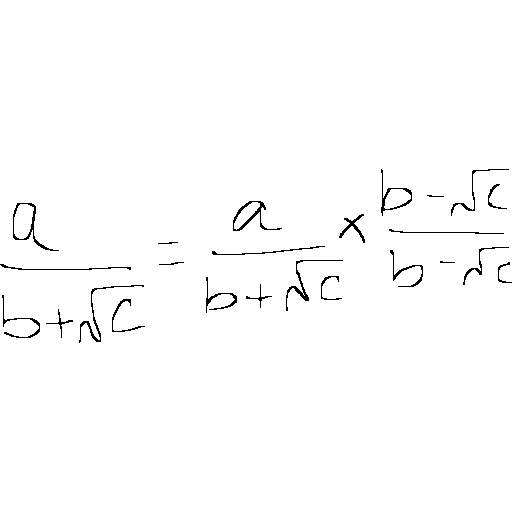 \frac{a}{b+\sqrt{c}} = \frac{a}{b+\sqrt{c}} \times \frac{b-\sqrt{c}}{b-\sqrt{c}}